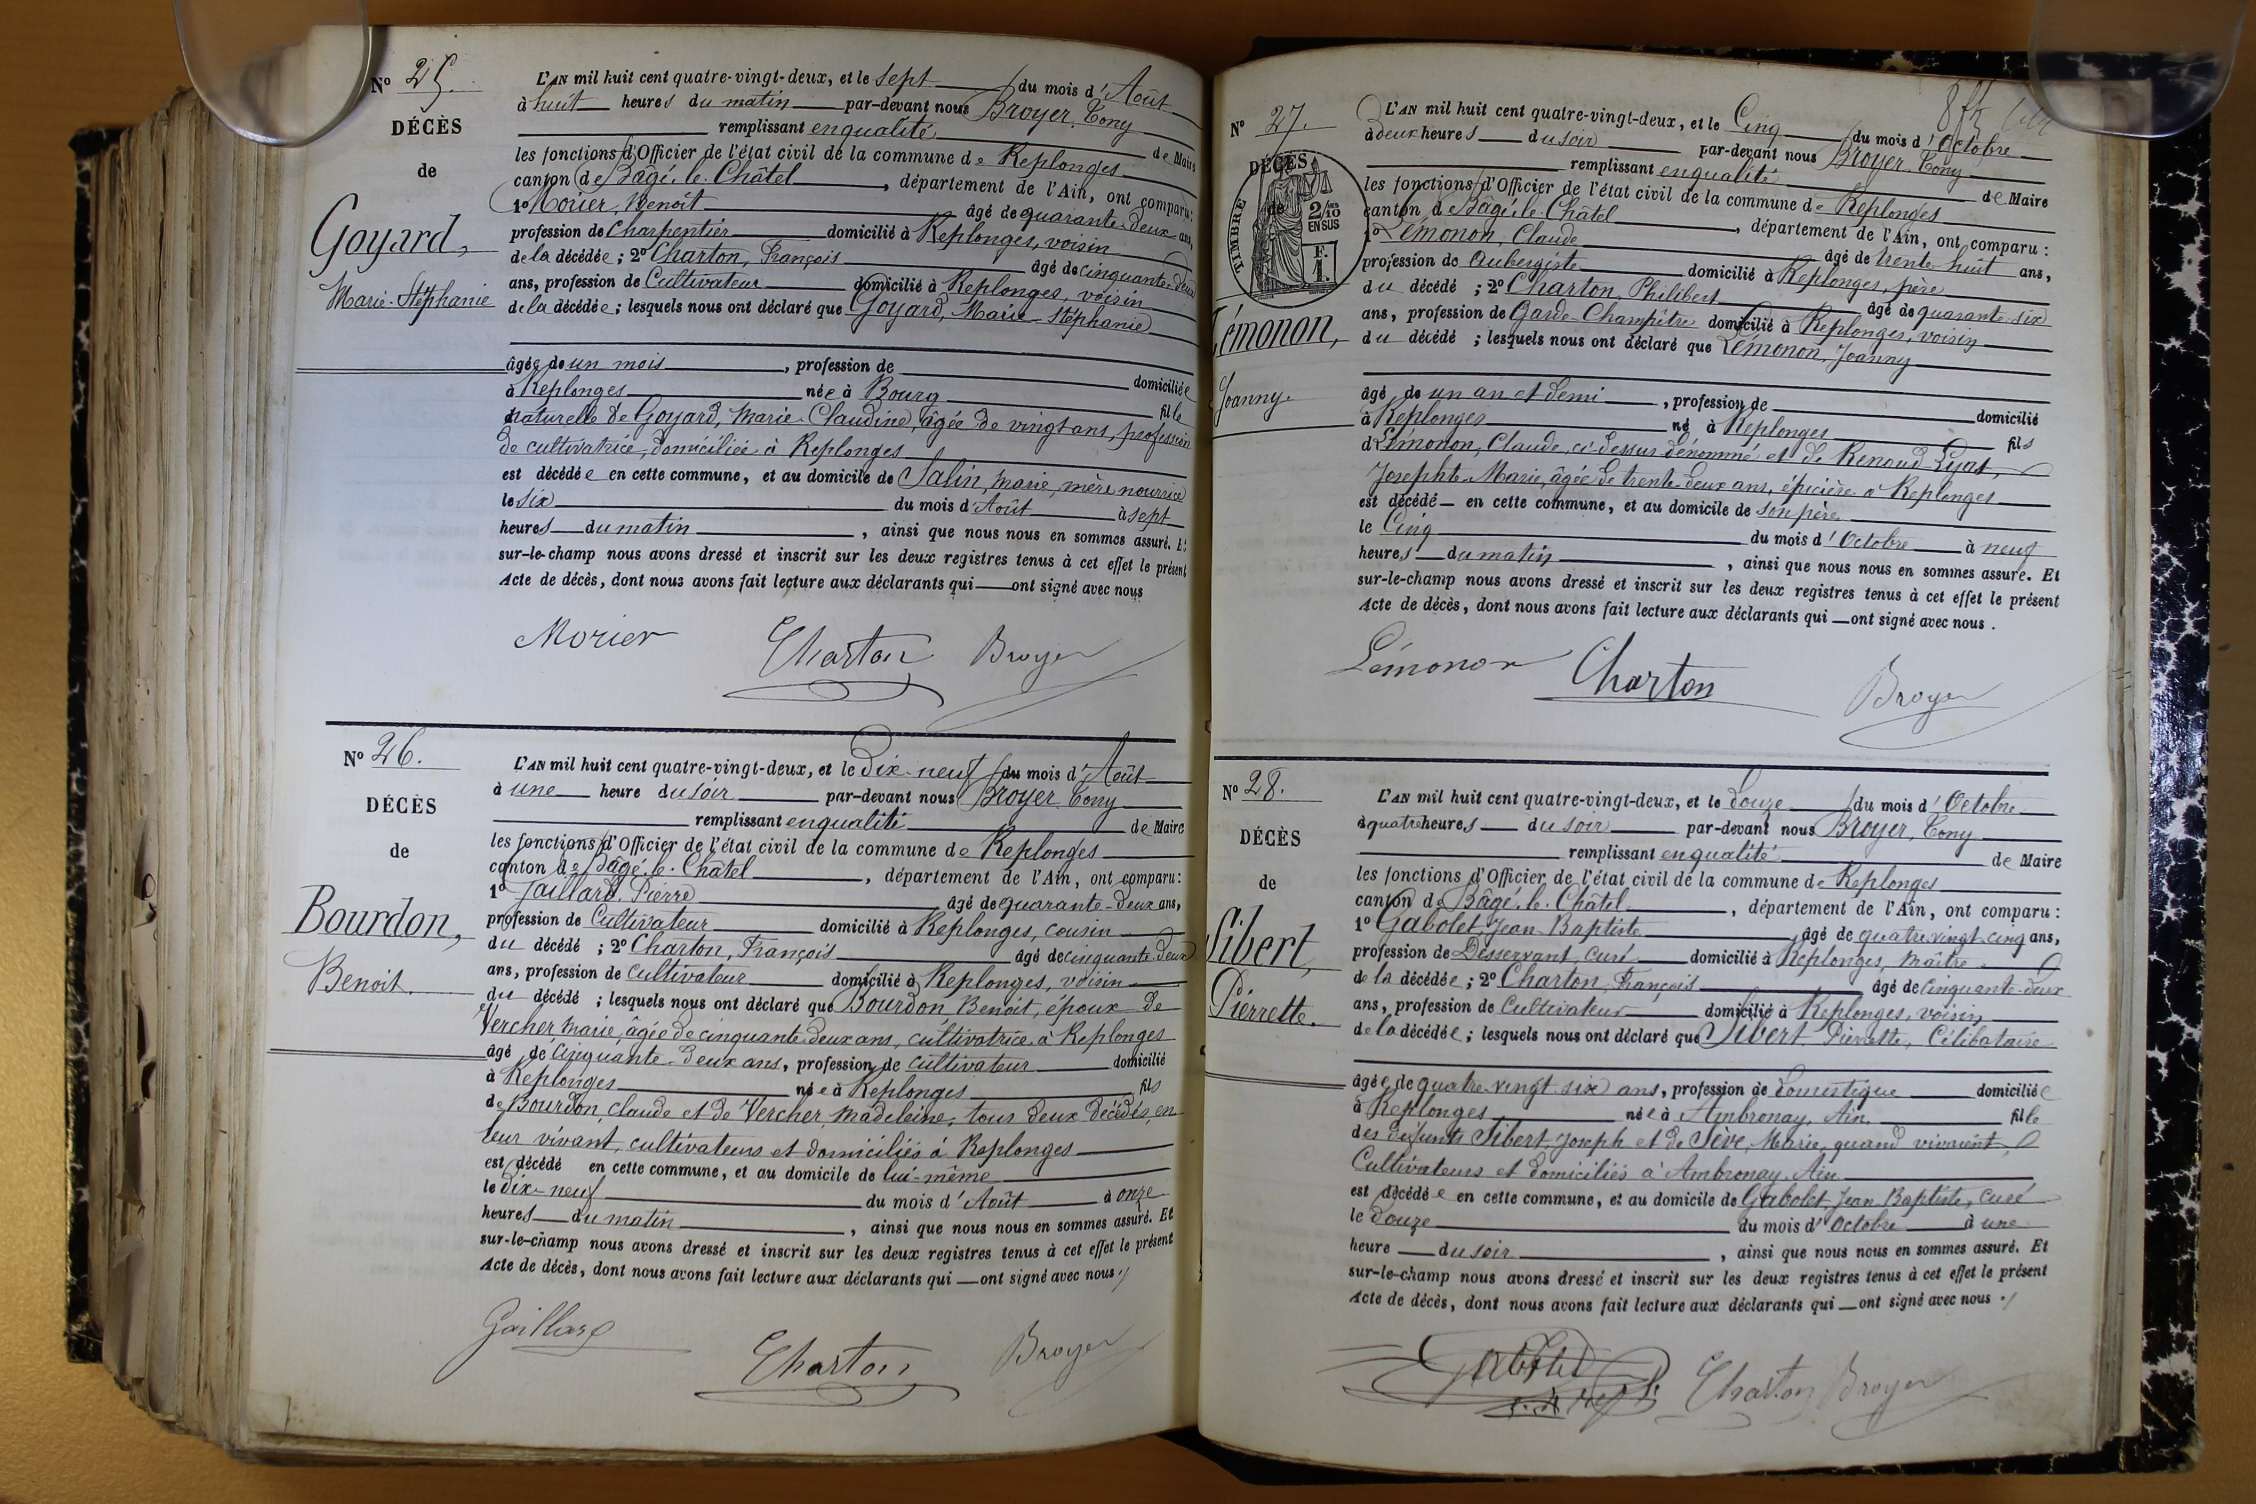 N° 25.
DÉCÈS
de
Goyard,
Marie-Stéphanie
L'AN mil huit cent quatre-vingt-deux, et le sept du mois d'Août
à huit heures du matin par-devant nous Broyer, Tony
remplissant en qualité de Maire
les fonctions d'Officier de l'état civil de la commune de Replonges
canton de Bâgé-le-Châtel, département de l'Ain, ont comparu :
1° Morier, Benoît âgé de quarante-deux ans,
profession de Charpentier domicilié à Replonges, voisin
de la décédée ; 2° Charton, François âgé de cinquante-deux
ans, profession de Cultivateur domicilié à Replonges, voisin
de la décédée ; lesquels nous ont déclaré que Goyard, Marie-Stéphanie
âgée de un mois, profession de domiciliée
à Replonges née à Bourg fille
naturelle de Goyard, Marie-Claudine, âgée de vingt ans, profession
de cultivatrice, domiciliée à Replonges
est décédée en cette commune, et au domicile de Salin, Marie, mère nourrice
le six du mois d'Août à sept
heures du matin, ainsi que nous nous en sommes assuré. Et
sur-le-champ nous avons dressé et inscrit sur les deux registres tenus à cet effet le présent
Acte de décès, dont nous avons fait lecture aux déclarants qui ont signé avec nous
Morier Charton Broyer
N° 26.
DÉCÈS
de
Bourdon,
Benoit.
L'AN mil huit cent quatre-vingt-deux, et le Dix-neuf du mois d'Août
à une heure du soir par-devant nous Broyer, Tony
remplissant en qualité de Maire
les fonctions d'Officier de l'état civil de la commune de Replonges
canton de Bâgé-le-Châtel, département de l'Ain, ont comparu :
1° Jaillard, Pierre âgé de quarante-deux ans,
profession de Cultivateur domicilié à Replonges, cousin
du décédé ; 2° Charton, François âgé de cinquante-deux
ans, profession de Cultivateur domicilié à Replonges, voisin
du décédé ; lesquels nous ont déclaré que Bourdon, Benoit, époux de
Vercher, Marie, âgée de cinquante deux ans, cultivatrice à Replonges
âgé de Cinquante-Deux ans, profession de cultivateur domicilié
à Replonges né à Replonges fils
de Bourdon, Claude et de Vercher, Madeleine, tous deux décédés, en
leur vivant, cultivateurs et domiciliés à Replonges
est décédé en cette commune, et au domicile de lui-même
le dix-neuf du mois d'Août à onze
heures du matin, ainsi que nous nous en sommes assuré. Et
sur-le-champ nous avons dressé et inscrit sur les deux registres tenus à cet effet le présent
Acte de décès, dont nous avons fait lecture aux déclarants qui ont signé avec nous
Gaillard Charton Broyer
N° 27.
DÉCÈS
de
TIMBRE
2/10
EN SUS
F.
1.
Lémonon,
Joanny.
L'AN mil huit cent quatre-vingt-deux, et le Cinq du mois d'Octobre
à deux heures du soir par-devant nous Broyer, Tony
remplissant en qualité de Maire
les fonctions d'Officier de l'état civil de la commune de Replonges
canton de Bâgé-le-Châtel, département de l'Ain, ont comparu :
1° Lémonon, Claude âgé de trente-huit ans,
profession de Aubergiste domicilié à Replonges, père
du décédé ; 2° Charton, Philibert âgé de quarante-six
ans, profession de Garde-Champêtre domicilié à Replonges, voisin
du décédé ; lesquels nous ont déclaré que Lémonon, Joanny
âgé de un an et demi, profession de domicilié
à Replonges né à Replonges fils
de Lémonon, Claude, ci-dessus dénommé et de Renoud-Lyat,
Josephte-Marie, âgée de trente-deux ans, épicière à Replonges
est décédé en cette commune, et au domicile de son père
le Cinq du mois d'Octobre à neuf
heures du matin, ainsi que nous nous en sommes assuré. Et
sur-le-champ nous avons dressé et inscrit sur les deux registres tenus à cet effet le présent
Acte de décès, dont nous avons fait lecture aux déclarants qui ont signé avec nous.
Lémonon Charton Broyer
N° 28.
DÉCÈS
de
Sibert,
Pierrette.
L'AN mil huit cent quatre-vingt-deux, et le Douze du mois d'Octobre
à quatre heures du soir par-devant nous Broyer, Tony
remplissant en qualité de Maire
les fonctions d'Officier de l'état civil de la commune de Replonges
canton de Bâgé-le-Châtel, département de l'Ain, ont comparu :
1° Gabolet, Jean-Baptiste âgé de quatre vingt-cinq ans,
profession de Desservant, curé domicilié à Replonges, maître
de la décédée ; 2° Charton, François âgé de cinquante-deux
ans, profession de Cultivateur domicilié à Replonges, voisin
de la décédée ; lesquels nous ont déclaré que Sibert Pierrette, Célibataire
âgée de quatre-vingt six ans, profession de Domestique domiciliée
à Replonges née à Ambronay, Ain. fille
des défunts Sibert, Joseph et de Sève, Marie, quand vivaient,
Cultivateurs et domiciliés à Ambronay, Ain
est décédée en cette commune, et au domicile de Gabolet Jean Baptiste, curé
le Douze du mois d'Octobre à une
heure du soir, ainsi que nous nous en sommes assuré. Et
sur-le-champ nous avons dressé et inscrit sur les deux registres tenus à cet effet le présent
Acte de décès, dont nous avons fait lecture aux déclarants qui ont signé avec nous.
Gabolet Charton Broyer